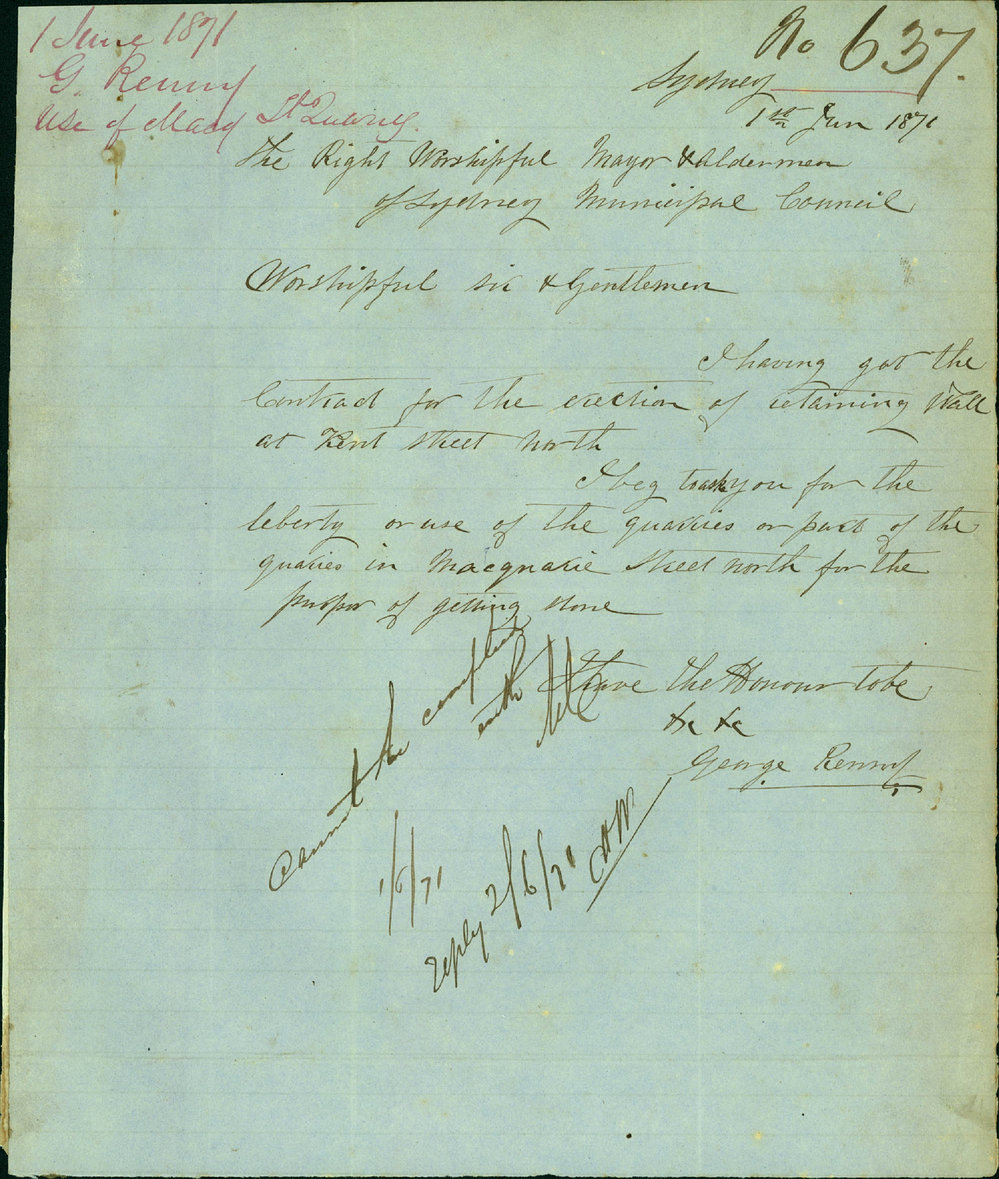 1 June 1871
G. Renny
Use of Macq St Quarry.
No 637.
Sydney
1st Jun 1871
The Right Worshipful Mayor & Aldermen
of Sydney Municipal Council
Worshipful Sir & Gentlemen
I having got the
Contract for the erection of retaining Wall
at Kent Street North
I beg to ask you for the
leberty or use of the quaries or part of the
quaries in Macquarie Street north for the
purpos of getting stone
I have the Honour to be
&c &c
George Renny
Cannot be complied
with
1/6/71
reply 2/6/71